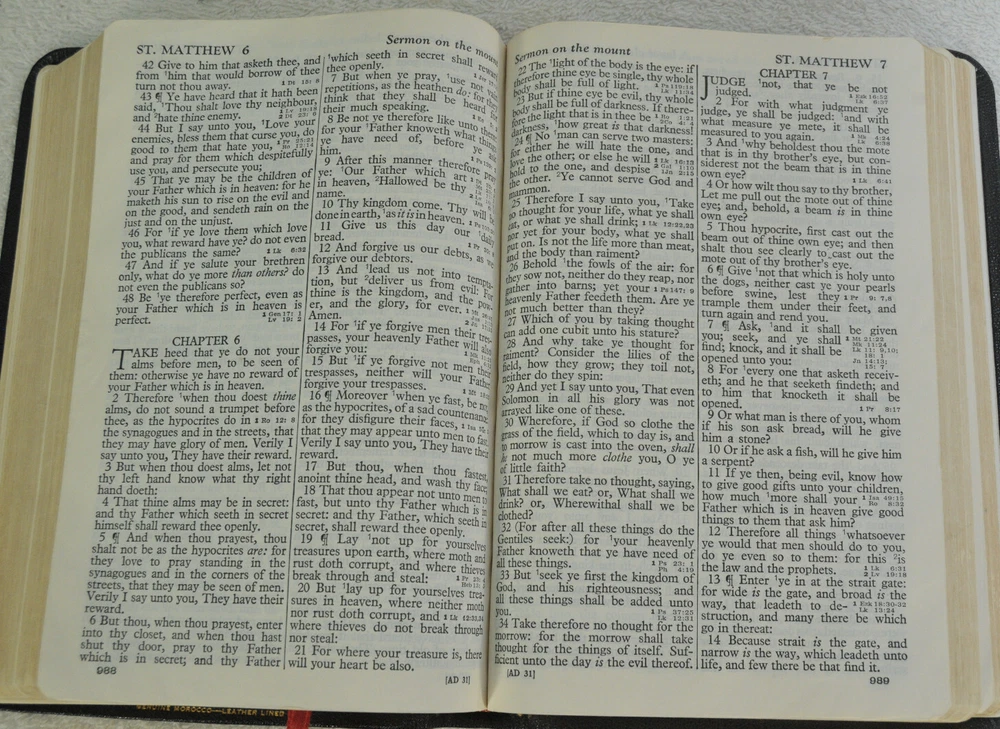 ST. MATTHEW 6
Sermon on the
42 Give to him that asketh thee, and
from ¹him that would borrow of thee
turn not thou away.
43 ¶ Ye have heard that it hath been
said, ¹Thou shalt love thy neighbour,
and ²hate thine enemy.
44 But I say unto you, ¹Love your
enemies, bless them that curse you, do
good to them that hate you,
and pray for them which despitefully
use you, and persecute you;
45 That ye may be the children of
your Father which is in heaven: for he
maketh his sun to rise on the evil and
on the good, and sendeth rain on the
just and on the unjust.
46 For ¹if ye love them which love
you, what reward have ye? do not even
the publicans the same? 1 Lk 6:32
47 And if ye salute your brethren
only, what do ye more than others? do
not even the publicans so?
48 Be ¹ye therefore perfect, even as
your Father which is in heaven is
perfect. 1 Gen 17: 1
Lv 19: 2
CHAPTER 6
TAKE heed that ye do not your
alms before men, to be seen of
them: otherwise ye have no reward of
your Father which is in heaven.
2 Therefore ¹when thou doest thine
alms, do not sound a trumpet before
thee, as the hypocrites do in 1 Ro 12: 8
the synagogues and in the streets, that
they may have glory of men. Verily I
say unto you, They have their reward.
3 But when thou doest alms, let not
thy left hand know what thy right
hand doeth:
4 That thine alms may be in secret:
and thy Father which seeth in secret
himself shall reward thee openly.
5 ¶ And when thou prayest, thou
shalt not be as the hypocrites are: for
they love to pray standing in the
synagogues and in the corners of the
streets, that they may be seen of men.
Verily I say unto you, They have their
reward.
6 But thou, when thou prayest, enter
into thy closet, and when thou hast
shut thy door, pray to thy Father
which is in secret; and thy Father
¹which seeth in secret shall
thee openly.
7 But when ye pray, ¹use not
repetitions, as the heathen do: for
think that they shall be heard
their much speaking.
8 Be not ye therefore like unto
for your ¹Father knoweth what
ye have need of, before ye
him.
9 After this manner therefore
ye: ¹Our Father which art
in heaven, ²Hallowed be thy
name.
10 Thy kingdom come. Thy will be
done in earth, ¹as it is in heaven.
11 Give us this day our ¹daily
bread.
12 And forgive us our debts, as we
forgive our debtors.
13 And ¹lead us not into tempta-
tion, but ²deliver us from evil: For
thine is the kingdom, and the pow-
er, and the glory, for ever.
Amen.
14 For ¹if ye forgive men their tres-
passes, your heavenly Father will also
forgive you:
15 But ¹if ye forgive not men their
trespasses, neither will your Father
forgive your trespasses.
16 ¶ Moreover ¹when ye fast, be not,
as the hypocrites, of a sad countenance:
for they disfigure their faces,
that they may appear unto men to fast.
Verily I say unto you, They have their
reward.
17 But thou, when thou fastest,
anoint thine head, and wash thy face;
18 That thou appear not unto men to
fast, but unto thy Father which is in
secret: and thy Father, which seeth in
secret, shall reward thee openly.
19 ¶ Lay ¹not up for yourselves
treasures upon earth, where moth and
rust doth corrupt, and where thieves
break through and steal:
20 But ¹lay up for yourselves trea-
sures in heaven, where neither moth
nor rust doth corrupt, and 1 Lk 12:33,34
where thieves do not break through
nor steal:
21 For where your treasure is, there
will your heart be also.
988
[AD 31]
GENUINE MOROCCO—LEATHER LINED
Sermon on the mount
ST. MATTHEW 7
22 The ¹light of the body is the eye: if
therefore thine eye be single, thy whole
body shall be full of light.
23 But if thine eye be evil, thy whole
body shall be full of darkness. If there-
fore the light that is in thee be
darkness, ¹how great is that darkness!
24 ¶ No ¹man can serve two masters:
for either he will hate the one, and
love the other; or else he will 1 Lk 16:13
hold to the one, and despise
the other. ²Ye cannot serve God and
mammon.
25 Therefore I say unto you, ¹Take
no thought for your life, what ye shall
eat, or what ye shall drink; 1 Lk 12:22,23
nor yet for your body, what ye shall
put on. Is not the life more than meat,
and the body than raiment?
26 Behold ¹the fowls of the air: for
they sow not, neither do they reap, nor
gather into barns; yet your 1 Ps 147: 9
heavenly Father feedeth them. Are ye
not much better than they?
27 Which of you by taking thought
can add one cubit unto his stature?
28 And why take ye thought for
raiment? Consider the lilies of the
field, how they grow; they toil not,
neither do they spin:
29 And yet I say unto you, That even
Solomon in all his glory was not
arrayed like one of these.
30 Wherefore, if God so clothe the
grass of the field, which to day is, and
to morrow is cast into the oven, shall
he not much more clothe you, O ye
of little faith?
31 Therefore take no thought, saying,
What shall we eat? or, What shall we
drink? or, Wherewithal shall we be
clothed?
32 (For after all these things do the
Gentiles seek:) for ¹your heavenly
Father knoweth that ye have need of
all these things. 1 Ps 23: 1
Ph 4:19
33 But ¹seek ye first the kingdom of
God, and his righteousness; and
all these things shall be added unto
you. 1 Ps 37:25
Lk 12:31
34 Take therefore no thought for the
morrow: for the morrow shall take
thought for the things of itself. Suf-
ficient unto the day is the evil thereof.
CHAPTER 7
JUDGE ¹not, that ye be not
judged. 1 Ezk 16:52
Lk 6:37
2 For with what judgment ye
judge, ye shall be judged: ¹and with
what measure ye mete, it shall be
measured to you again. 1 Mk 4:24
Lk 6:38
3 And ¹why beholdest thou the mote
that is in thy brother's eye, but con-
siderest not the beam that is in thine
own eye? 1 Lk 6:41
4 Or how wilt thou say to thy brother,
Let me pull out the mote out of thine
eye; and, behold, a beam is in thine
own eye?
5 Thou hypocrite, first cast out the
beam out of thine own eye; and then
shalt thou see clearly to cast out the
mote out of thy brother's eye.
6 ¶ Give ¹not that which is holy unto
the dogs, neither cast ye your pearls
before swine, lest they 1 Pr 9: 7,8
trample them under their feet, and
turn again and rend you.
7 ¶ Ask, ¹and it shall be given
you; seek, and ye shall 1 Mt 21:22
Mk 11:24
find; knock, and it shall be Lk 11: 9,10;
18: 1
opened unto you: Jn 14:13;
15: 7
8 For ¹every one that asketh receiv-
eth; and he that seeketh findeth; and
to him that knocketh it shall be
opened. 1 Pr 8:17
9 Or what man is there of you, whom
if his son ask bread, will he give
him a stone?
10 Or if he ask a fish, will he give him
a serpent?
11 If ye then, being evil, know how
to give good gifts unto your children,
how much ¹more shall your 1 Isa 49:15
Ro 8:32
Father which is in heaven give good
things to them that ask him?
12 Therefore all things ¹whatsoever
ye would that men should do to you,
do ye even so to them: for this ²is
the law and the prophets. 1 Lk 6:31
2 Lv 19:18
13 ¶ Enter ¹ye in at the strait gate:
for wide is the gate, and broad is the
way, that leadeth to de- 1 Ezk 18:30-32
Lk 13:24
struction, and many there be which
go in thereat:
14 Because strait is the gate, and
narrow is the way, which leadeth unto
life, and few there be that find it.
[AD 31]
989